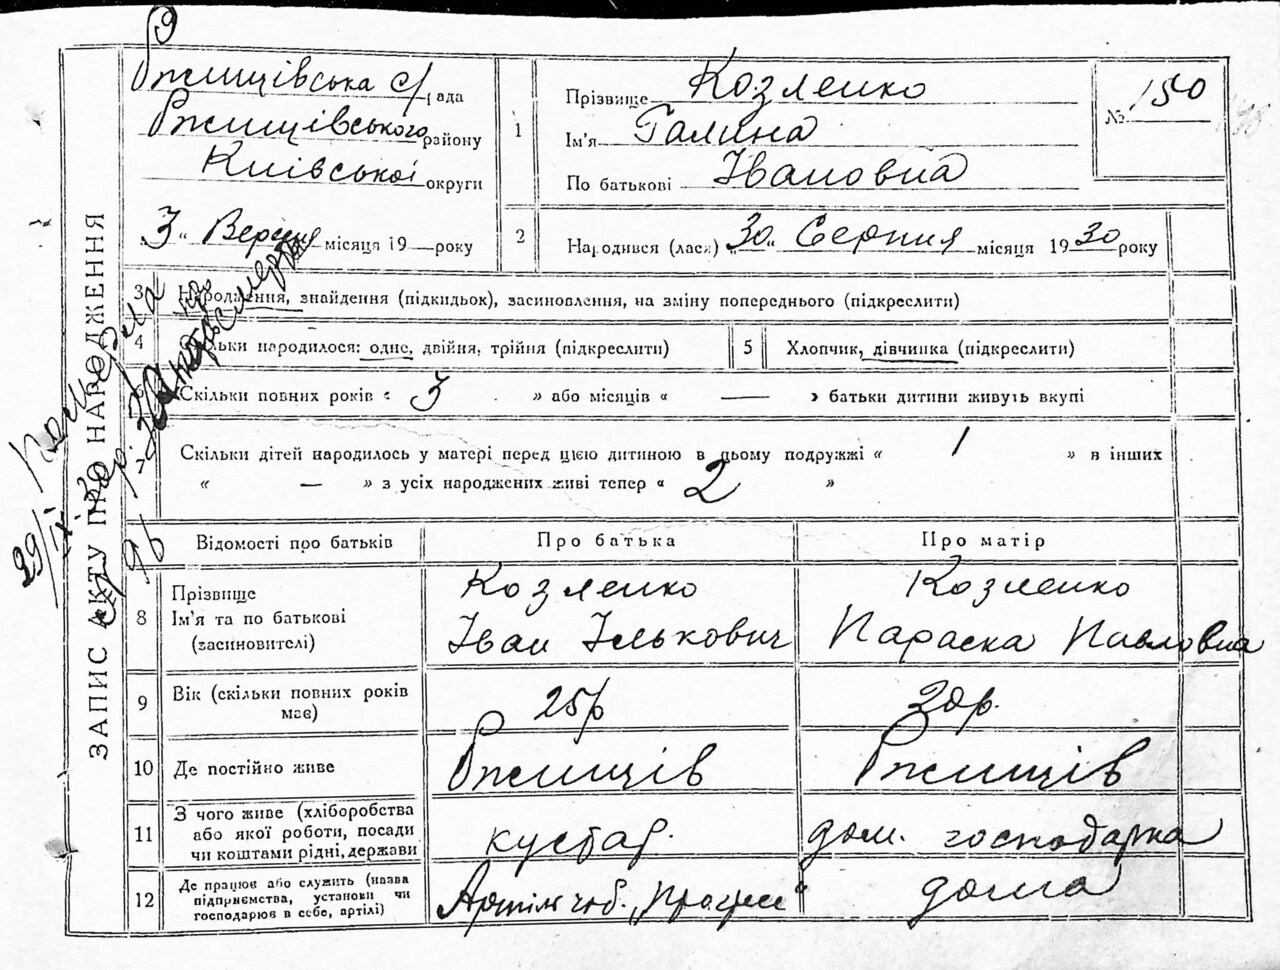 ЗАПИС АКТУ ПРО НАРОДЖЕННЯ
Ржищівська с/рада
Ржищівського району
Київської округи
"3" Вересня місяця 19 — року
1
Прізвище Козленко
Ім'я Галина
По батькові Івановна
№ 150
2
Народився (лася) "30" Серпня місяця 1930 року
3
Народження, знайдення (підкидьок), засиновлення, на зміну попереднього (підкреслити)
4
льки народилося: одне, двійня, трійня (підкреслити)
5
Хлопчик, дівчинка (підкреслити)
6
Скільки повних років « 3 » або місяців « — » батьки дитини живуть вкупі
7
Скільки дітей народилось у матері перед цією дитиною в цьому подружжі « 1 » в інших
« — » з усіх народжених живі тепер « 2 »
Відомості про батьків
Про батька
Про матір
8
Прізвище
Ім'я та по батькові
(засиновителі)
Козленко
Іван Ількович
Козленко
Параска Павловна
9
Вік (скільки повних років
має)
25р
20р.
10
Де постійно живе
Ржищів
Ржищів
11
З чого живе (хліборобства
або якої роботи, посади
чи коштами рідні, держави
кустар.
дом. господарка
12
Де працює або служить (назва
підприємства, установи чи
господарює в себе, артілі)
Артіль чоб. „Прогрес"
дома
29/IX